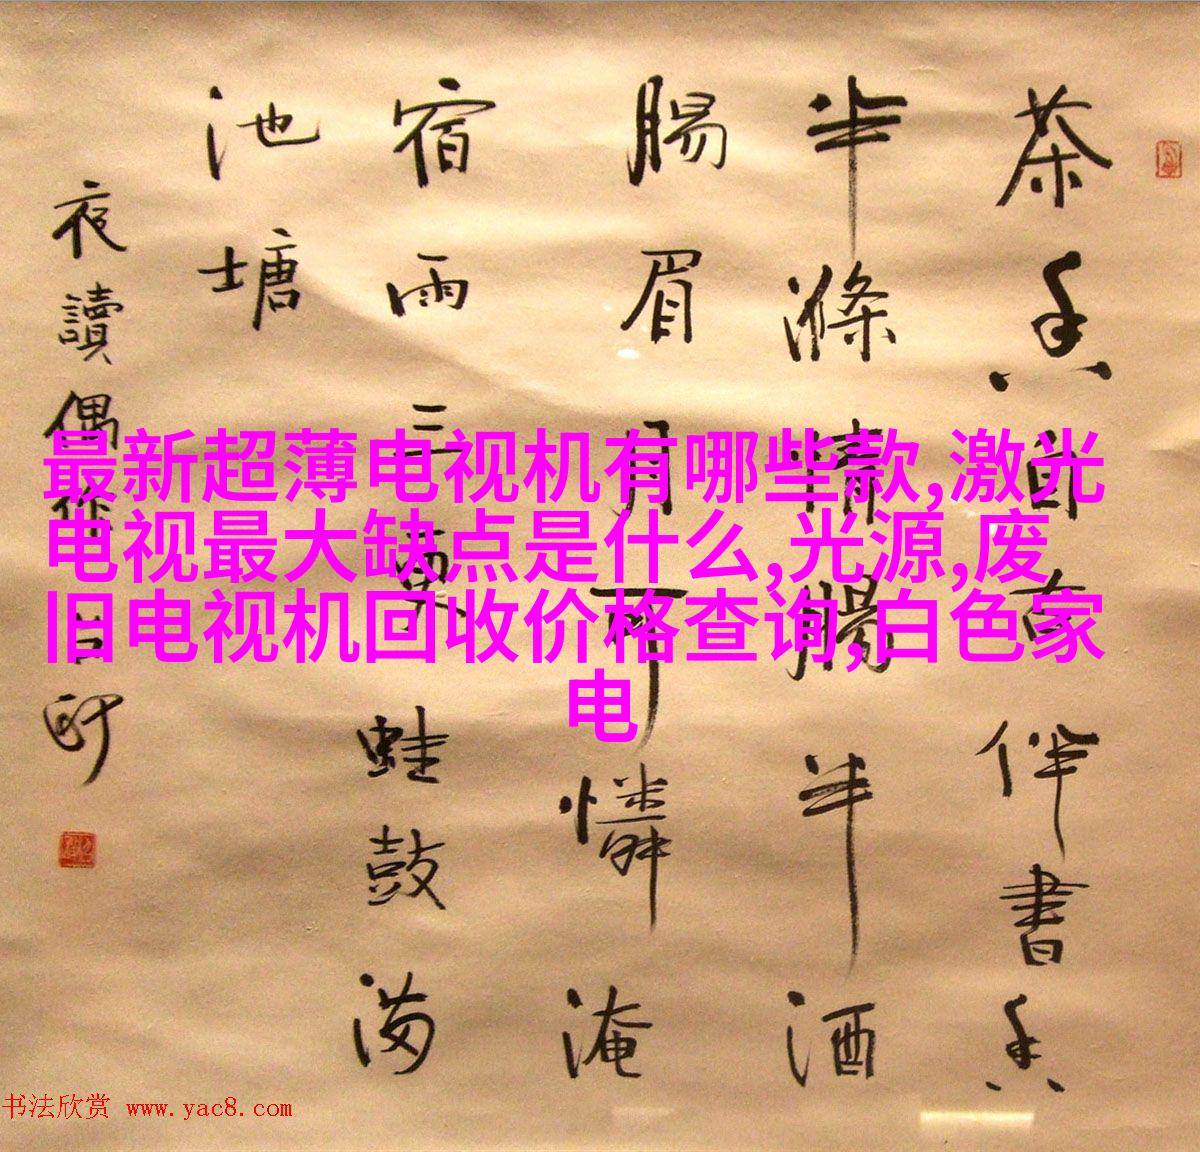 茶香自古伴書香
半滌情腸半酒
腸眉月可憐淹
宿雨三更蛙鼓满
池塘
夜讀偶作
最新超薄电视机有哪些款,激光
电视最大缺点是什么,光源,废
旧电视机回收价格查询,白色家
电
书法欣赏 www.yac8.com